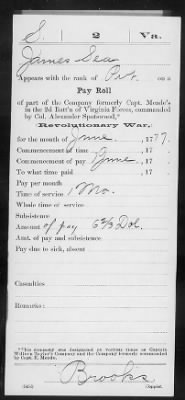 S 2 Va.
James Sea
Appears with the rank of Pvt. on a
Pay Roll
of part of the Company formerly Capt. Meade's
in the 2d Batt'n of Virginia Forces, commanded
by Col. Alexander Spotswood,*
Revolutionary War,
for the month of June, 1777.
Commencement of time , 17
Commencement of pay 1 June, 17
To what time paid , 17
Pay per month
Time of service 1 Mo.
Whole time of service
Subsistence
Amount of pay 6 2/3 Dol.
Amt. of pay and subsistence
Pay due to sick, absent
Casualties
Remarks:
*This company was designated at various times as Captain
William Taylor's Company and the Company formerly commanded
by Capt. E. Meade.
Brooks
Copyist.